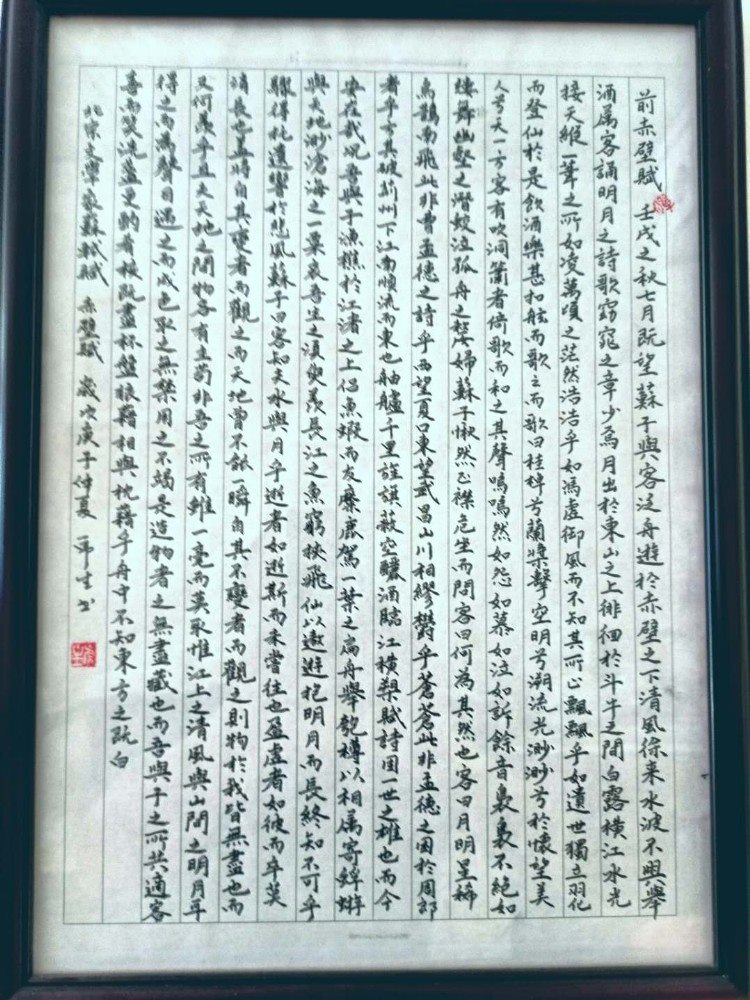 前赤壁賦 壬戌之秋七月既望蘇子與客泛舟遊於赤壁之下清風徐來水波不興舉
酒属客誦明月之詩歌窈窕之章少焉月出於東山之上徘徊於斗牛之間白露橫江水光
接天縱一葦之所如凌萬頃之茫然浩浩乎如馮虛御風而不知其所止飄飄乎如遺世獨立羽化
而登仙於是飲酒樂甚扣舷而歌之而歌曰桂棹兮蘭槳擊空明兮溯流光渺渺兮於懷望美
人兮天一方客有吹洞簫者倚歌而和之其聲嗚嗚然如怨如慕如泣如訴餘音裊裊不絕如
縷舞幽壑之潛蛟泣孤舟之嫠婦蘇子愀然正襟危坐而問客曰何為其然也客曰月明星稀
烏鵲南飛此非曹孟德之詩乎西望夏口東望武昌山川相繆鬱乎蒼蒼此非孟德之困於周郎
者乎方其破荊州下江南順流而東也舳艫千里旌旗蔽空釃酒臨江橫槊賦詩固一世之雄也而今
安在哉况吾與子漁樵於江渚之上侣魚蝦而友麋鹿駕一葉之扁舟舉匏樽以相属寄蜉蝣
與天地渺滄海之一粟哀吾生之須臾羡長江之無窮挾飛仙以遨遊抱明月而長終知不可乎
驟得託遺響於悲風蘇子曰客知夫水與月乎逝者如逝斯而未嘗往也盈虛者如彼而卒莫
消長也蓋將自其變者而觀之而天地曾不能一瞬自其不變者而觀之則物於我皆無盡也而
又何羡乎且夫天地之間物各有主苟非吾之所有雖一毫而莫取惟江上之清風與山間之明月耳
得之而為聲目遇之而成色取之無禁用之不竭是造物者之無盡藏也而吾與子之所共適客
喜而笑洗盞更酌肴核既盡杯盤狼藉相與枕藉乎舟中不知東方之既白
北宋文學家蘇軾賦 赤壁賦 歲次庚子仲夏 生書